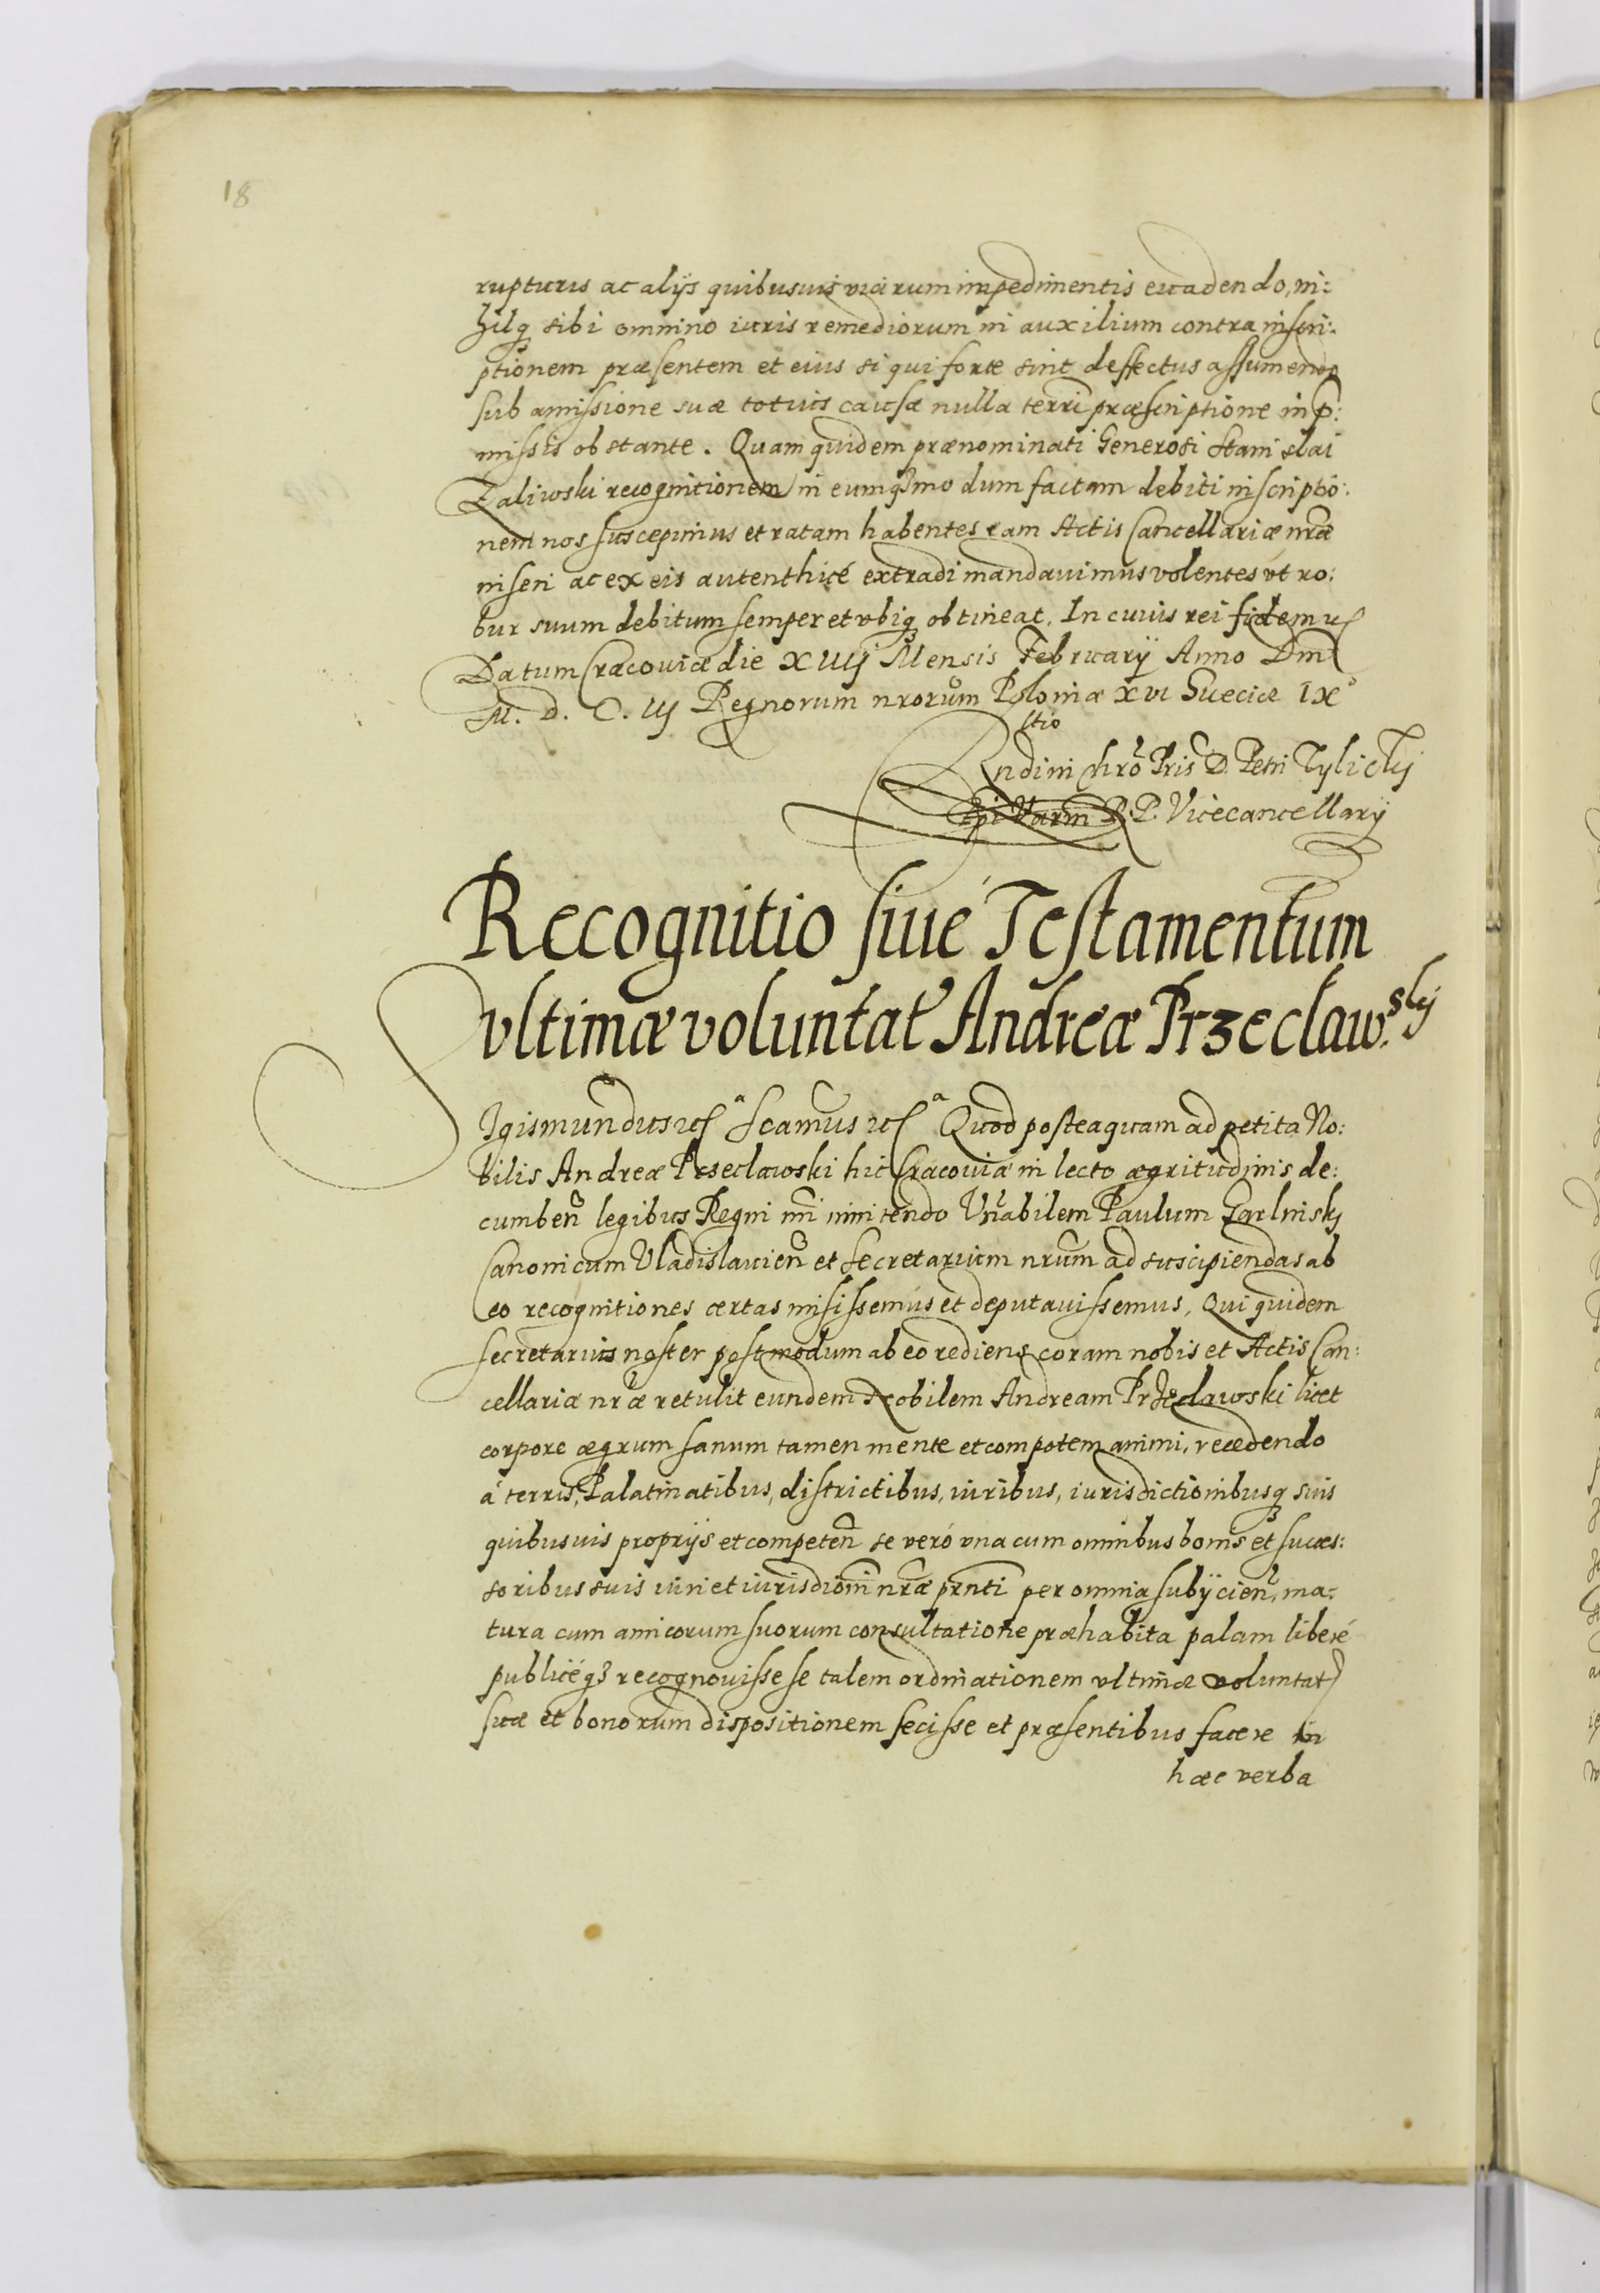 18
rupturis ac alijs quibusuis viarum impedimentis euadendo, ni:
hilq sibi omnino iuris remediorum in auxilium contra inscri:
ptionem præsentem et eius si qui forte sint deffectus assumendo
sub amissione suæ totius causæ nulla terri præscriptione in p:
missis obstante. Quam quidem prænominati Generosi Stanislai
Zaliwski recognitionem in eumqsmodum factam debiti inscriptio:
nem nos suscepimus et ratam habentes eam Actis Cancellariæ nræ
inseri ac ex eis autenthicé extradi mandauimus volentes vt ro:
bur suum debitum semper et vbiq obtineat. In cuius rei fidem
Datum Cracouiæ die XIIIj Mensis February Anno Dni
M. D. C. iij Regnorum nrorum Poloniæ xvi Sueciæ IX°
Rndini Chro Pris D. Petri Tylicky
stio
Epi Varm R. P. Vicecancellary
Recognitio siué Testamentum
vltimæ voluntat Andreæ Przeclaw.skj
Sigismundus Seamus Quod posteaquam ad petita No:
bilis Andreæ Przeclawski hic Cracouiæ in lecto ægritudinis de:
cumben legibus Regni nri innitendo Vnabilem Paulum
Canonicum Vladislauien et Secretarium nrum ad suscipiendas ab
eo recognitiones certas misissemus et deputauissemus, Qui quidem
secretarius noster postmodum ab eo rediens coram nobis et Actis Can:
cellariæ nræ retulit eundem Nobilem Andream Przeclawski licet
corpore ægrum sanum tamen mente et compotem animi, recedendo
á terris, Palatinatibus, districtibus, iuribus, iurisdictionibusq suis
quibusuis proprijs et competen se veró vna cum omnibus bonis et succes:
soribus suis iuri et iurisdioni nræ prnti per omnia subijcien, ma:
tura cum amicorum suorum consultatione præhabita palam liberé
publicéq recognouisse se talem ordinationem vltimæ voluntat
suæ et bonorum dispositionem fecisse et præsentibus facere in
hæc verba